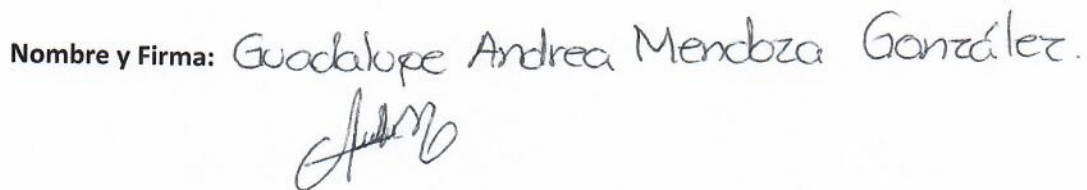 Nombre y Firma: Guadalupe Andrea Mendoza González.